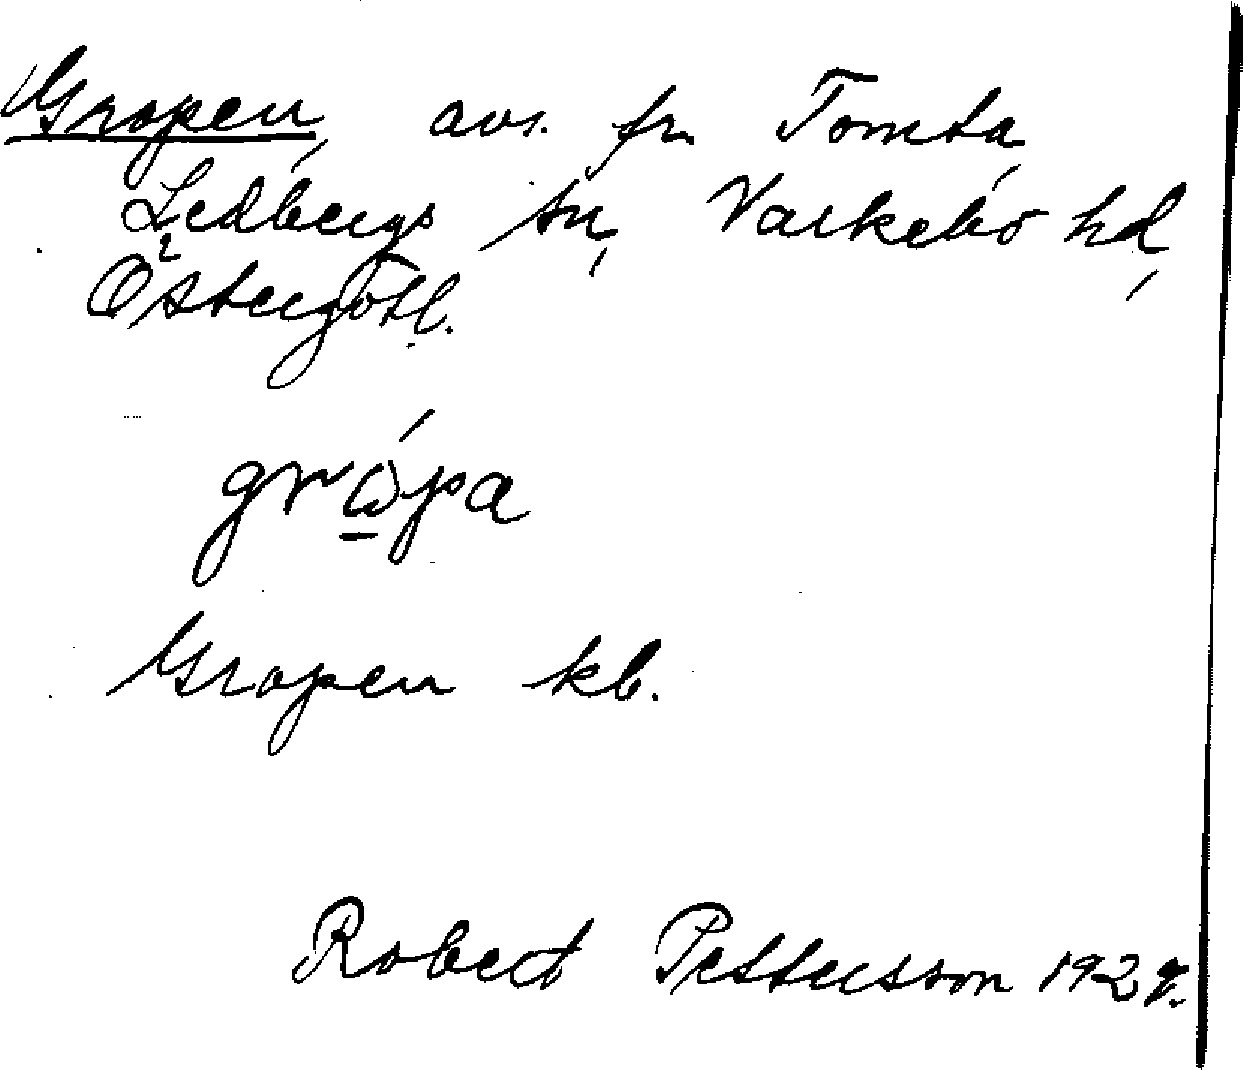 Gropen, avs. fr. Tomta,
Ledbergs sn, Valkebo hd,
Östergötl.
grώ̲pa
Gropen kb.
Robert Pettersson 1927.